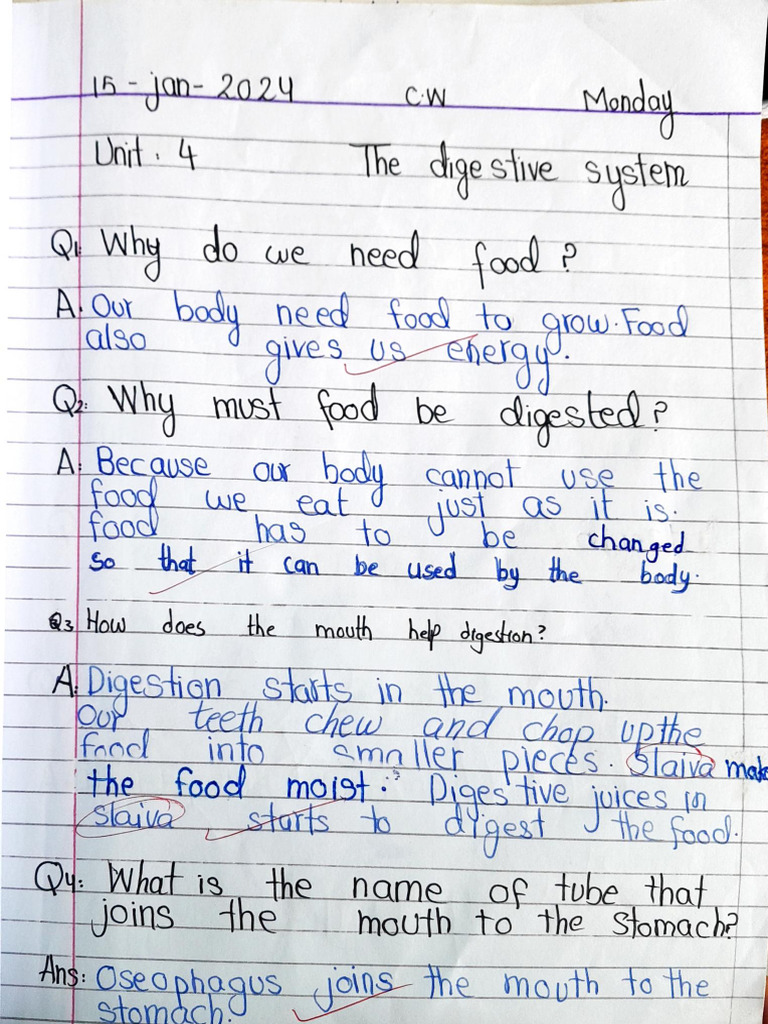 15-jan-2024 C.W Monday
Unit. 4 The digestive system
Q1. Why do we need food?
A. Our body need food to grow. Food
also gives us energy.
Q2: Why must food be digested?
A. Because our body cannot use the
food we eat just as it is.
food has to be changed
so that it can be used by the body.
Q3 How does the mouth help digestion?
A. Digestion starts in the mouth.
Our teeth chew and chop up the
food into smaller pieces. Slaiva make
the food moist. Digestive juices in
slaiva starts to digest the food.
Q4: What is the name of tube that
joins the mouth to the stomach?
Ans: Oseophagus joins the mouth to the
stomach.